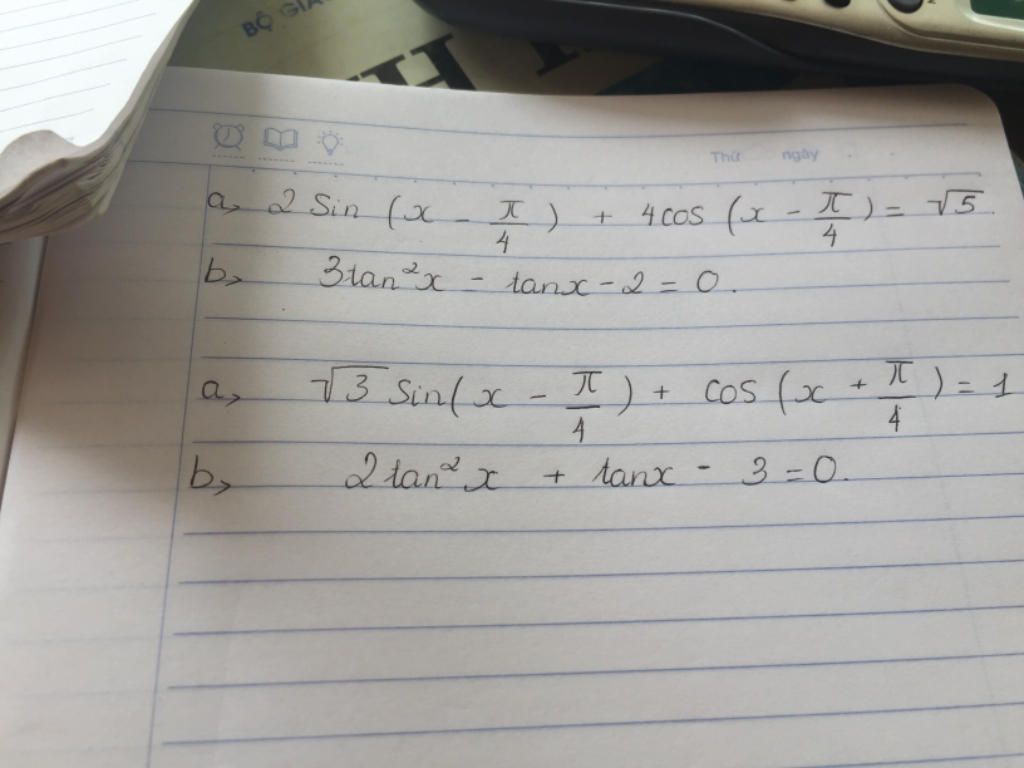 BỘ GIÁ
Thứ ngày
a, 2 Sin (x - π/4) + 4cos (x - π/4) = √5.
b, 3tan²x - tanx - 2 = 0.
a, √3 Sin(x - π/4) + cos (x + π/4) = 1
b, 2tan²x + tanx - 3 = 0.